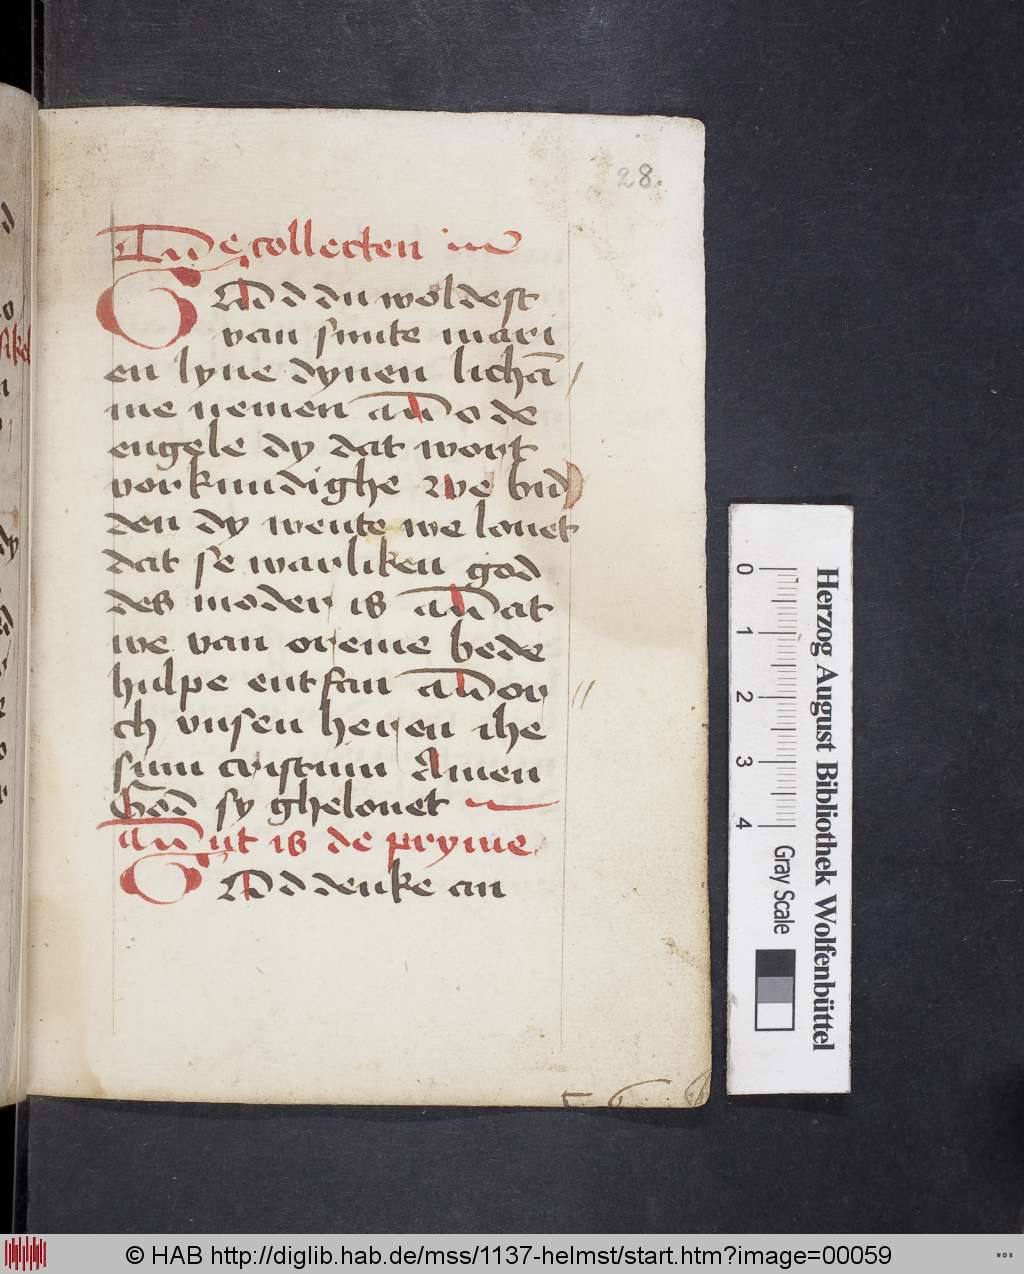 28.
collecten
GAD d du woldest
van sunte mari
en lyue dynen lichā
me nemen o de
engele dy dat wort
vorkundighe we bid
den dy wente we louet
dat se warliken god
des moder is at
we van oreme bede
hulpe entfan or
ch vnsen heren ihe
sum cristum Amen
God sy ghelouet
yt is de pryme
GAD d denke an
Herzog August Bibliothek Wolfenbüttel
0 1 2 3 4
Gray Scale
© HAB http://diglib.hab.de/mss/1137-helmst/start.htm?image=00059